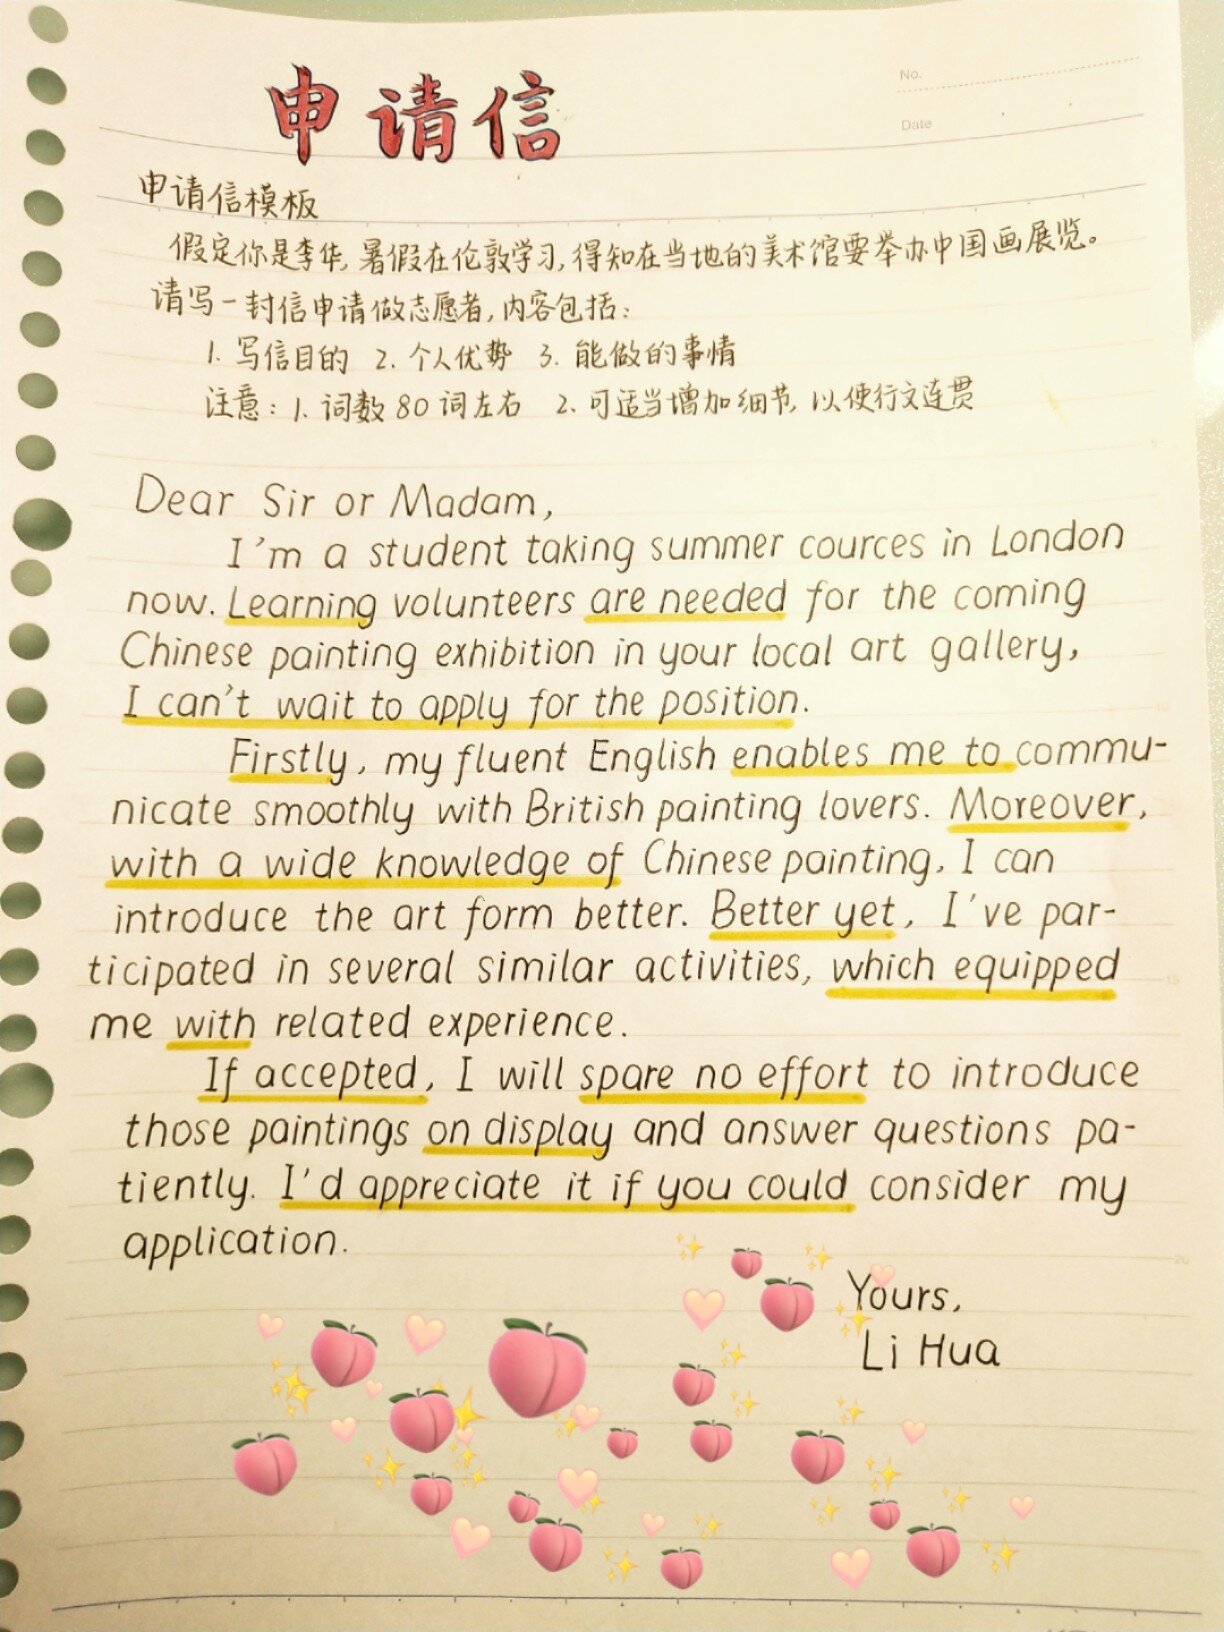 No.
Date
申请信
申请信模板
假定你是李华,暑假在伦敦学习,得知在当地的美术馆要举办中国画展览。
请写一封信申请做志愿者,内容包括:
1. 写信目的 2. 个人优势 3. 能做的事情
注意:1. 词数80词左右 2. 可适当增加细节,以使行文连贯
Dear Sir or Madam,
I'm a student taking summer cources in London
now. Learning volunteers are needed for the coming
Chinese painting exhibition in your local art gallery,
I can't wait to apply for the position.
Firstly, my fluent English enables me to commu-
nicate smoothly with British painting lovers. Moreover,
with a wide knowledge of Chinese painting, I can
introduce the art form better. Better yet, I've par-
ticipated in several similar activities, which equipped
me with related experience.
If accepted, I will spare no effort to introduce
those paintings on display and answer questions pa-
tiently. I'd appreciate it if you could consider my
application.
Yours,
Li Hua